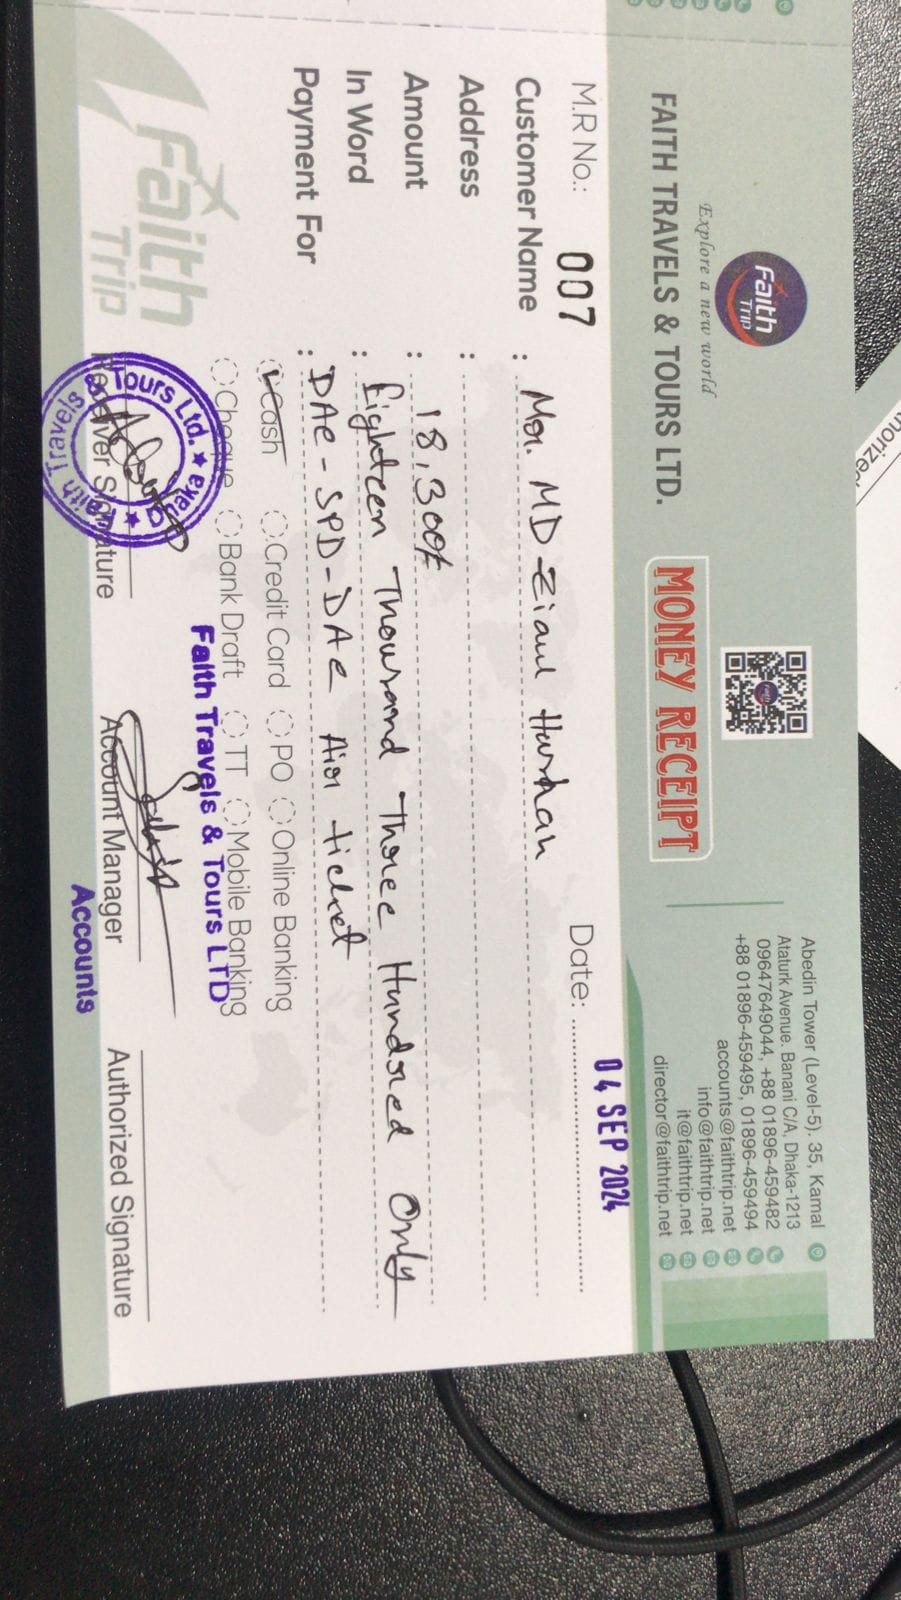 Faith
Trip
Explore a new world
FAITH TRAVELS & TOURS LTD.
MONEY RECEIPT
Abedin Tower (Level-5), 35, Kamal
Ataturk Avenue. Banani C/A, Dhaka-1213
09647649044, +88 01896-459482
+88 01896-459495, 01896-459494
accounts@faithtrip.net
info@faithtrip.net
it@faithtrip.net
director@faithtrip.net
M.R No.: 007
Date: 04 SEP 2024
Customer Name : Mr. MD Ziaul
Address :
Amount : 18,300/-
In Word : Eighteen Thousand Three Hundred Only
Payment For : DAC-SPD-DAC Air ticket
Cash Credit Card PO Online Banking
Cheque Bank Draft TT Mobile Banking
Faith Travels & Tours LTD
Faith
Trip
Faith Travels & Tours Ltd. ★ Dhaka ★
Receiver Signature
Account Manager
Accounts
Authorized Signature